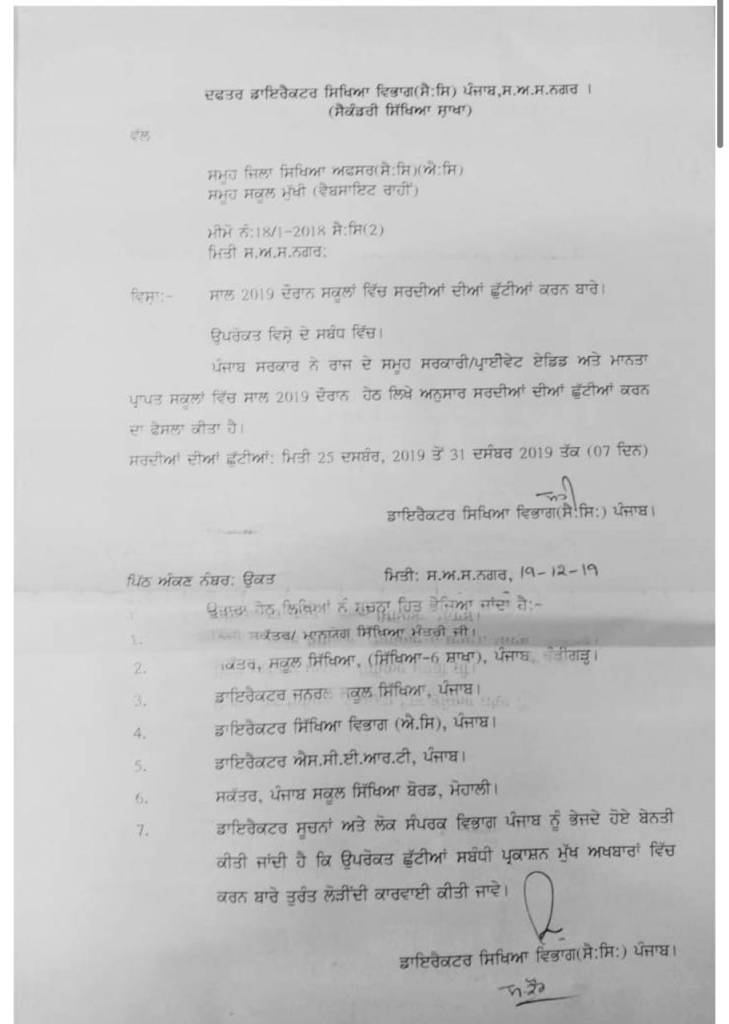 ਦਫਤਰ ਡਾਇਰੈਕਟਰ ਸਿਖਿਆ ਵਿਭਾਗ(ਸੈ:ਸਿ) ਪੰਜਾਬ,ਸ.ਅ.ਸ.ਨਗਰ ।
(ਸੈਕੰਡਰੀ ਸਿੱਖਿਆ ਸ਼ਾਖਾ)
ਵੱਲ
ਸਮੂਹ ਜਿਲਾ ਸਿਖਿਆ ਅਫਸਰ(ਸੈ:ਸਿ)(ਐ:ਸਿ)
ਸਮੂਹ ਸਕੂਲ ਮੁੱਖੀ (ਵੈਬਸਾਇਟ ਰਾਹੀਂ)
ਮੀਮੋ ਨੰ:18/1-2018 ਸੈ:ਸਿ(2)
ਮਿਤੀ ਸ.ਅ.ਸ.ਨਗਰ:
ਵਿਸ਼ਾ:- ਸਾਲ 2019 ਦੌਰਾਨ ਸਕੂਲਾਂ ਵਿੱਚ ਸਰਦੀਆਂ ਦੀਆਂ ਛੁੱਟੀਆਂ ਕਰਨ ਬਾਰੇ।
ਉਪਰੋਕਤ ਵਿਸ਼ੇ ਦੇ ਸਬੰਧ ਵਿੱਚ।
ਪੰਜਾਬ ਸਰਕਾਰ ਨੇ ਰਾਜ ਦੇ ਸਮੂਹ ਸਰਕਾਰੀ/ਪ੍ਰਾਈਵੇਟ ਏਡਿਡ ਅਤੇ ਮਾਨਤਾ
ਪ੍ਰਾਪਤ ਸਕੂਲਾਂ ਵਿੱਚ ਸਾਲ 2019 ਦੌਰਾਨ ਹੇਠ ਲਿਖੇ ਅਨੁਸਾਰ ਸਰਦੀਆਂ ਦੀਆਂ ਛੁੱਟੀਆਂ ਕਰਨ
ਦਾ ਫੈਸਲਾ ਕੀਤਾ ਹੈ।
ਸਰਦੀਆਂ ਦੀਆਂ ਛੁੱਟੀਆਂ: ਮਿਤੀ 25 ਦਸਬੰਰ, 2019 ਤੋਂ 31 ਦਸੰਬਰ 2019 ਤੱਕ (07 ਦਿਨ)
ਡਾਇਰੈਕਟਰ ਸਿਖਿਆ ਵਿਭਾਗ(ਸੈ:ਸਿ:) ਪੰਜਾਬ।
ਪਿੱਠ ਅੰਕਣ ਨੰਬਰ: ਉਕਤ ਮਿਤੀ: ਸ.ਅ.ਸ.ਨਗਰ, 19-12-19
ਹੇਠ ਲਿਖਿਆਂ ਨੂੰ ਸੂਚਨਾ ਹਿਤ ਭੇਜਿਆ ਜਾਂਦਾ ਹੈ:-
1. ਸਕੱਤਰ/ ਮਾਨਯੋਗ ਸਿੱਖਿਆ ਮੰਤਰੀ ਜੀ।
2. ਸਕੂਲ ਸਿੱਖਿਆ, (ਸਿੱਖਿਆ-6 ਸ਼ਾਖਾ), ਪੰਜਾਬ, ਚੰਡੀਗੜ੍ਹ।
3. ਡਾਇਰੈਕਟਰ ਜਨਰਲ ਸਕੂਲ ਸਿੱਖਿਆ, ਪੰਜਾਬ।
4. ਡਾਇਰੈਕਟਰ ਸਿੱਖਿਆ ਵਿਭਾਗ (ਐ.ਸਿ), ਪੰਜਾਬ।
5. ਡਾਇਰੈਕਟਰ ਐਸ.ਸੀ.ਈ.ਆਰ.ਟੀ, ਪੰਜਾਬ।
6. ਸਕੱਤਰ, ਪੰਜਾਬ ਸਕੂਲ ਸਿੱਖਿਆ ਬੋਰਡ, ਮੋਹਾਲੀ।
7. ਡਾਇਰੈਕਟਰ ਸੂਚਨਾਂ ਅਤੇ ਲੋਕ ਸੰਪਰਕ ਵਿਭਾਗ ਪੰਜਾਬ ਨੂੰ ਭੇਜਦੇ ਹੋਏ ਬੇਨਤੀ
ਕੀਤੀ ਜਾਂਦੀ ਹੈ ਕਿ ਉਪਰੋਕਤ ਛੁੱਟੀਆਂ ਸਬੰਧੀ ਪ੍ਰਕਾਸ਼ਨ ਮੁੱਖ ਅਖਬਾਰਾਂ ਵਿੱਚ
ਕਰਨ ਬਾਰੇ ਤੁਰੰਤ ਲੋੜੀਂਦੀ ਕਾਰਵਾਈ ਕੀਤੀ ਜਾਵੇ।
ਡਾਇਰੈਕਟਰ ਸਿਖਿਆ ਵਿਭਾਗ(ਸੈ:ਸਿ:) ਪੰਜਾਬ।